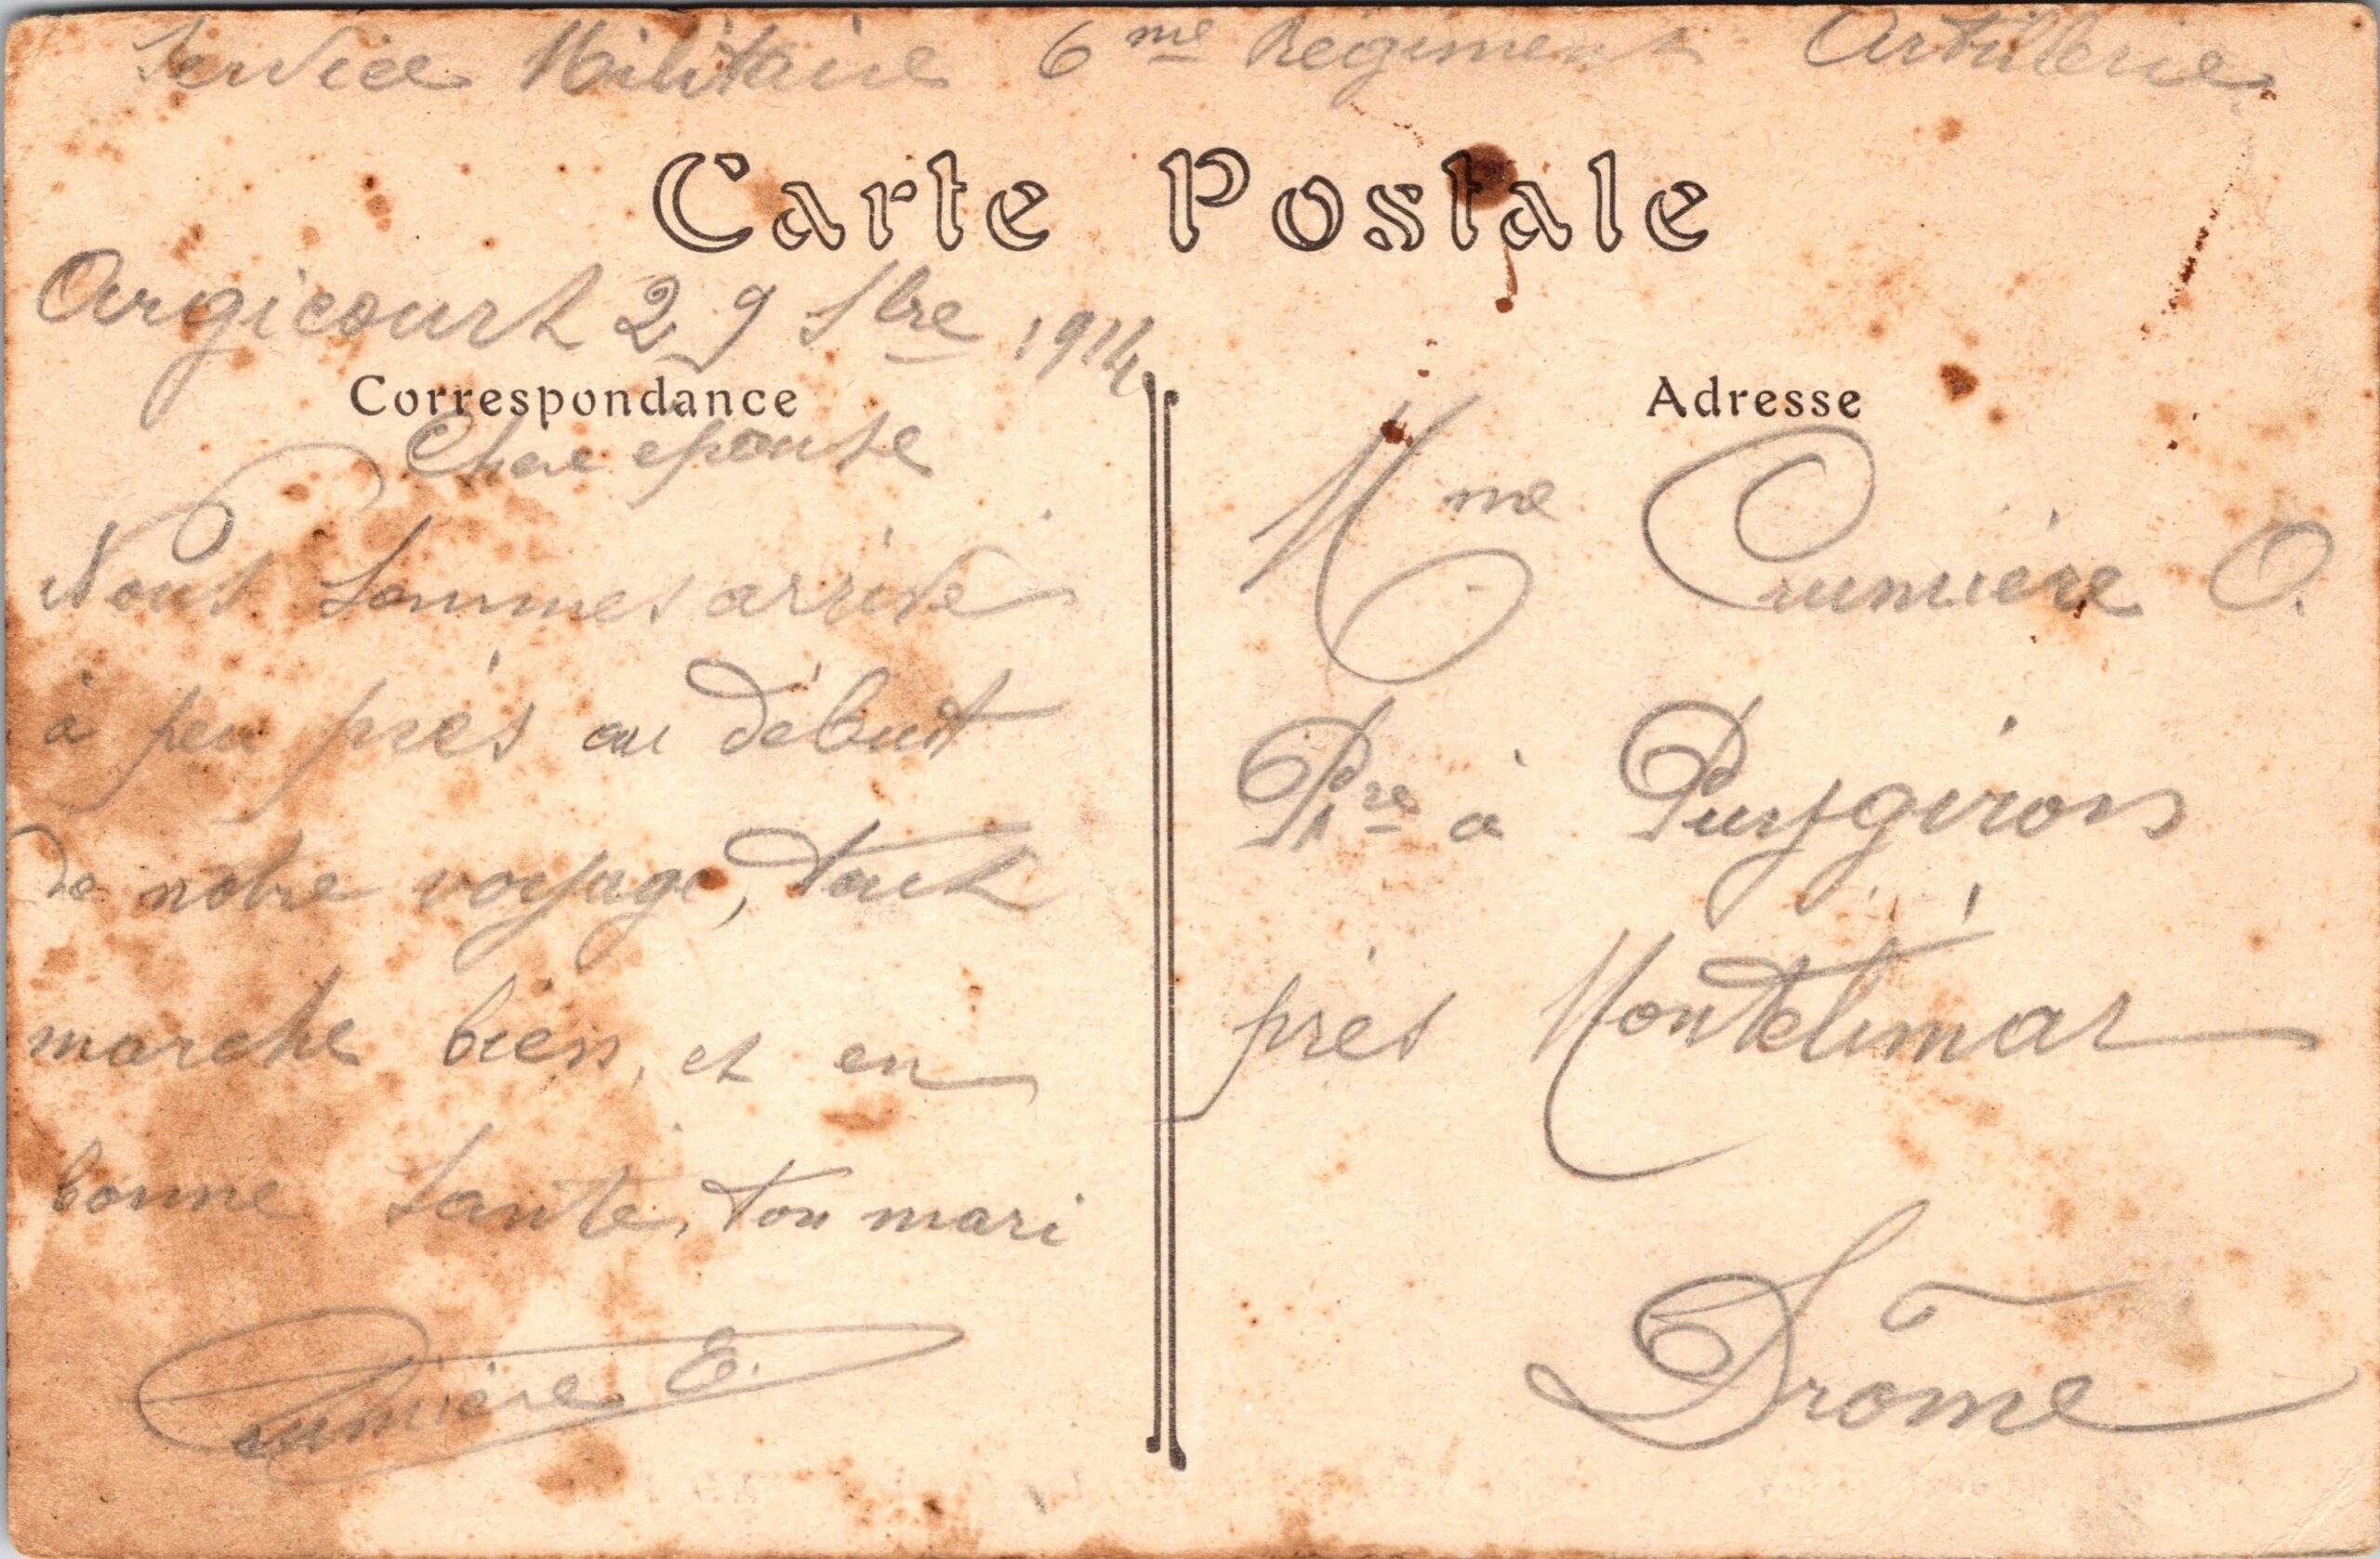 Service Militaire 6me Régiment Artillerie
Carte Postale
Argicourt 29 Sbre 1914
Correspondance
Chere epouse
Nous sommes arrivé
à peu près au début
de notre voyage, tout
marche bien, et en
bonne santé, ton mari
Crumière E.
Adresse
Mme Crumière O.
Pre à Puygiron
près Montélimar
Drôme